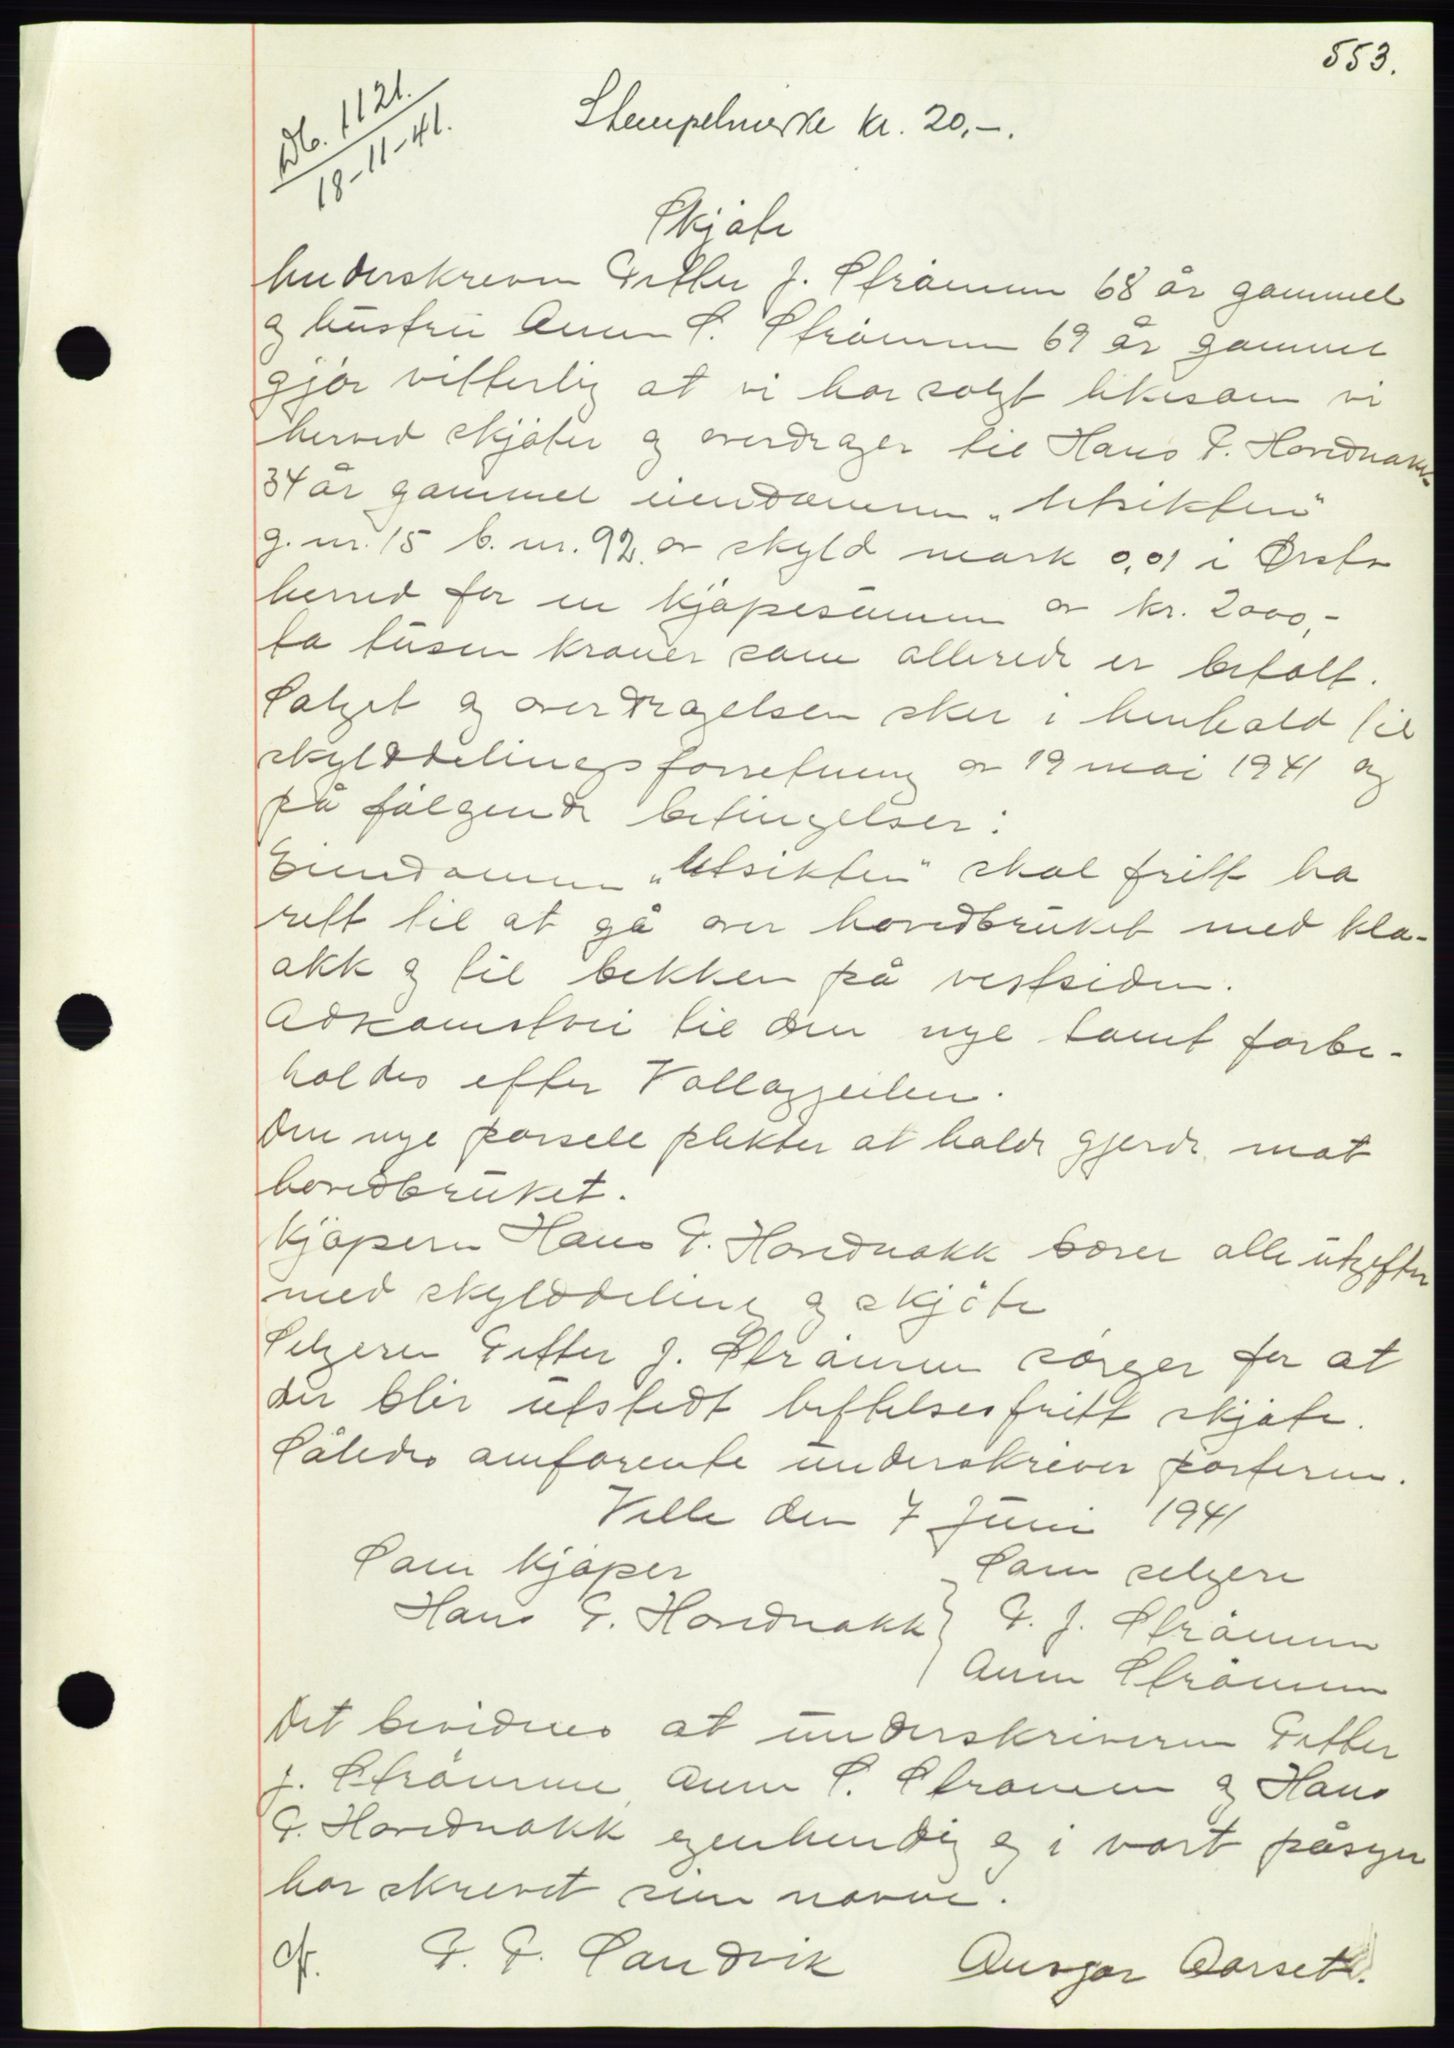 553.
Db. 1121.
18-11-41.
Stempelmerke kr. 20,-.
Skjöte
Underskreven Petter J. Strömmen 68 år gammel
og hustru Anne S. Strömmen 69 år gammel
gjör vitterlig at vi har solgt likesom vi
herved skjöter og overdrager til Hans P. Hovdnakk
34 år gammel eiendommen „Utsikten"
g.nr. 15 b.nr. 92. av skyld mark 0,01 i Ørsta
herred for en kjöpesummen av kr. 2000,-
to tusen kroner som allerede er betalt.
Salget og overdragelsen sker i henhold til
skylddelingsforretning av 19 mai 1941 og
på fölgende betingelser:
Eiendommen „Utsikten" skal fritt ha
rett til at gå over hovedbruket med klo-
akk og til bekken på vestsiden.
Adkomstvei til den nye tomt forbe-
holdes efter
Den nye parsell plikter at holde gjerde mot
hovedbruket.
Kjöperen Hans P. Hovdnakk bærer alle utgifter
med skylddeling og skjöte
Selgeren Petter J. Strömmen sörger for at
der blir utstedt heftelsesfritt skjöte.
Således omforente underskriver parterne.
Velle den 7 Juni 1941
Som kjöper Som selgere
Hans P. Hovdnakk P. J. Strömmen
Anne Strömmen
Det bevidnes at underskriveren Petter
J. Strömmen, Anne S. Strömmen og Hans
P. Hovdnakk egenhendig og i vort påsyn
har skrevet sine navne.
P. P. Sandvik Ansgar Aarset.